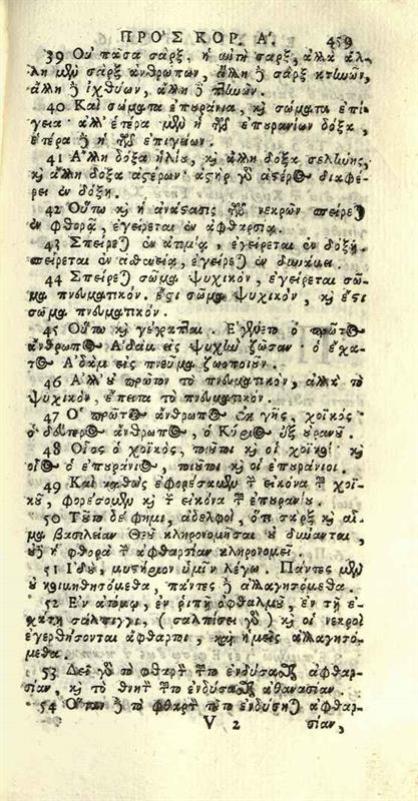 ΠΡΟ'Σ ΚΟΡ. Α'. 459
39 Οὐ πᾶσα σὰρξ, ἡ αὐτὴ σάρξ, ἀλλὰ ἄλ-
λη μὲν σὰρξ ἀνθρώπων, ἄλλη δὲ σὰρξ κτηνῶν,
ἄλλη δὲ ἰχθύων, ἄλλη δὲ πτηνῶν.
40 Καὶ σώματα ἐπουράνια, καὶ σώματα ἐπί-
γεια· ἀλλ' ἑτέρα μὲν ἡ τῶν ἐπουρανίων δόξα,
ἑτέρα δὲ ἡ τῶν ἐπιγείων.
41 Α῎λλη δόξα ἡλίου, καὶ ἄλλη δόξα σελήνης,
καὶ ἄλλη δόξα ἀστέρων· ἀστὴρ γὰρ ἀστέρος διαφέ-
ρει ἐν δόξῃ.
42 Οὕτω καὶ ἡ ἀνάστασις τῶν νεκρῶν· σπείρεται
ἐν φθορᾷ, ἐγείρεται ἐν ἀφθαρσίᾳ.
43 Σπείρεται ἐν ἀτιμίᾳ, ἐγείρεται ἐν δόξῃ.
σπείρεται ἐν ἀσθενείᾳ, ἐγείρεται ἐν δυνάμει.
44 Σπείρεται σῶμα ψυχικὸν, ἐγείρεται σῶ-
μα πνευματικόν. ἔστι σῶμα ψυχικὸν, καὶ ἔστι
σῶμα πνευματικόν.
45 Οὕτω καὶ γέγραπται. Ε'γένετο ὁ πρῶτος
ἄνθρωπος Α'δὰμ εἰς ψυχὴν ζῶσαν· ὁ ἔσχα-
τος Α'δὰμ εἰς πνεῦμα ζωοποιοῦν.
46 Α'λλ' οὐ πρῶτον τὸ πνευματικὸν, ἀλλὰ τὸ
ψυχικὸν, ἔπειτα τὸ πνευματικόν.
47 Ο' πρῶτος ἄνθρωπος ἐκ γῆς, χοϊκός·
ὁ δεύτερος ἄνθρωπος, ὁ Κύριος ἐξ οὐρανοῦ.
48 Οἷος ὁ χοϊκὸς, τοιοῦτοι καὶ οἱ χοϊκοί· καὶ
οἷος ὁ ἐπουράνιος, τοιοῦτοι καὶ οἱ ἐπουράνιοι.
49 Καὶ καθὼς ἐφορέσαμεν τὴν εἰκόνα τοῦ χοϊ-
κοῦ, φορέσομεν καὶ τὴν εἰκόνα τοῦ ἐπουρανίου.
50 Τοῦτο δέ φημι, ἀδελφοὶ, ὅτι σὰρξ καὶ αἷ-
μα βασιλείαν Θεοῦ κληρονομῆσαι οὐ δύνανται,
οὐδὲ ἡ φθορὰ τὴν ἀφθαρσίαν κληρονομεῖ.
51 Ι'δοὺ, μυστήριον ὑμῖν λέγω. Πάντες μὲν
οὐ κοιμηθησόμεθα, πάντες δὲ ἀλλαγησόμεθα.
52 Ε'ν ἀτόμῳ, ἐν ῥιπῇ ὀφθαλμοῦ, ἐν τῇ ἐ-
σχάτῃ σάλπιγγι, (σαλπίσει γὰρ) καὶ οἱ νεκροὶ
ἐγερθήσονται ἄφθαρτοι, καὶ ἡμεῖς ἀλλαγησό-
μεθα.
53 Δεῖ γὰρ τὸ φθαρτὸν τοῦτο ἐνδύσασθαι ἀφθαρ-
σίαν, καὶ τὸ θνητὸν τοῦτο ἐνδύσασθαι ἀθανασίαν.
54 Ὅταν δὲ τὸ φθαρτὸν τοῦτο ἐνδύσηται ἀφθαρ-
V 2 σίαν,